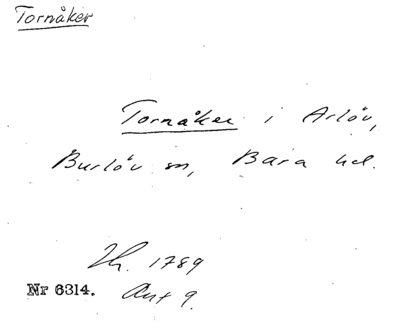 Tornåker
Tornåker i Arlöv,
Burlöv sn, Bara hd.
Th. 1789
Nr 6314. Akt 9.